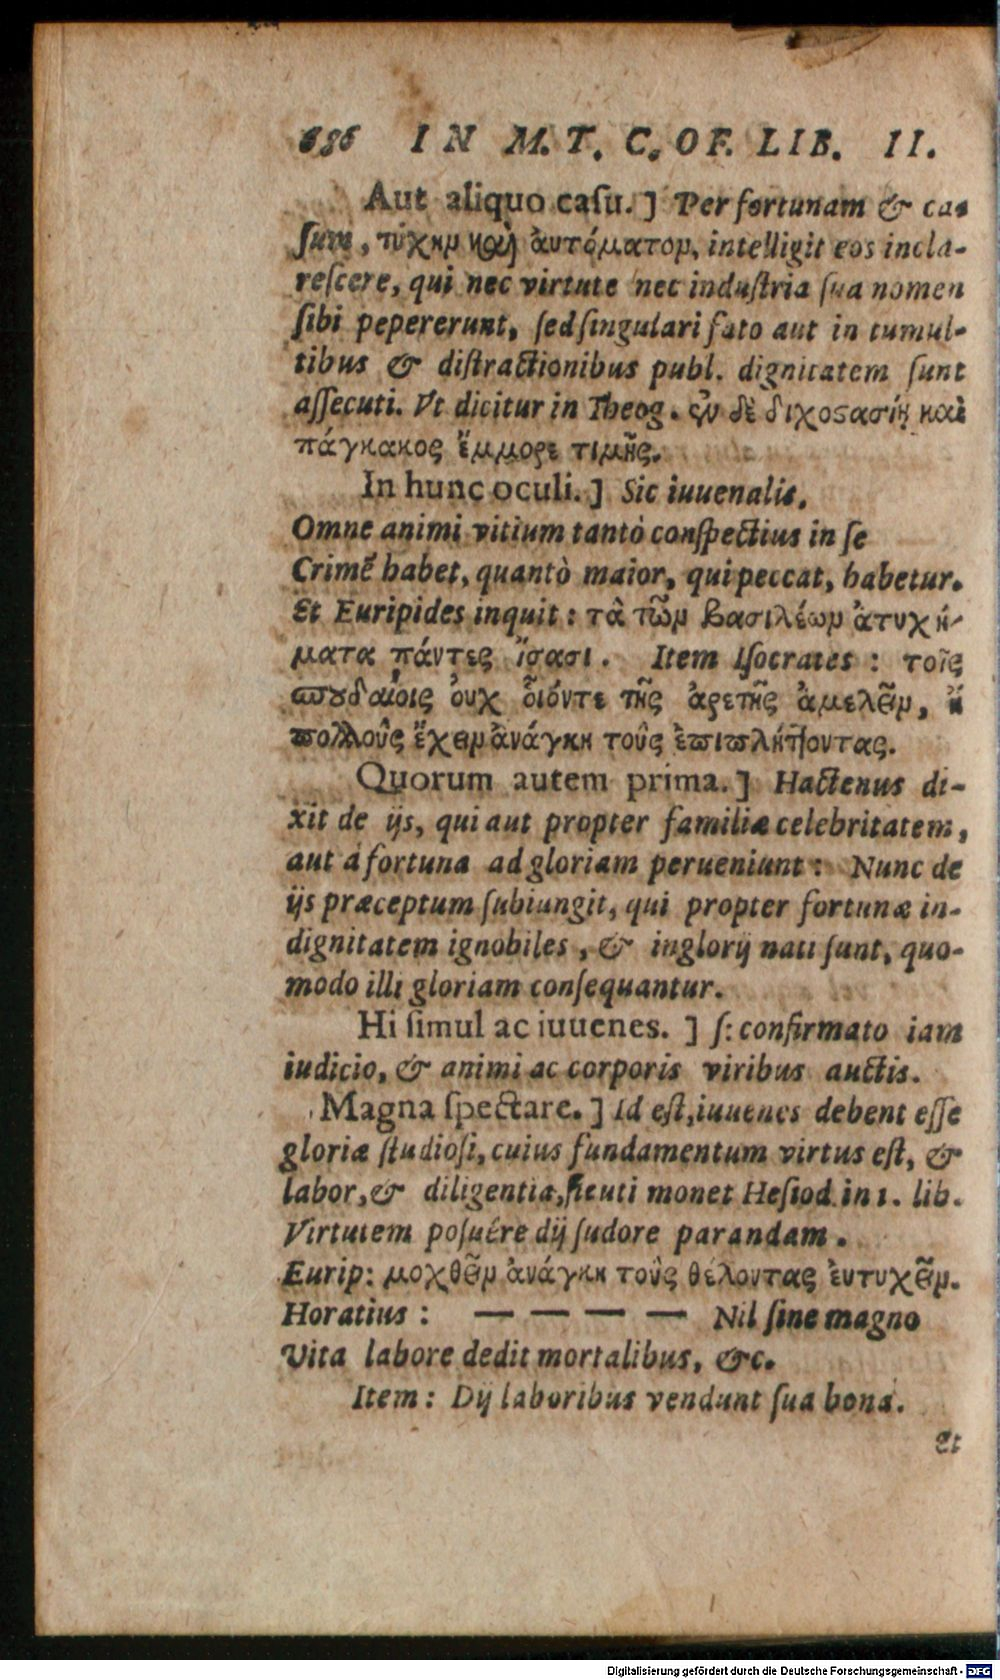 686 IN M. T. C. OF. LIB. II.
Aut aliquo caſu. ] Per fortunam & ca-
ſum, τύχην καὶ ἀυτόματον, intelligit eos incla-
reſcere, qui nec virtute nec induſtria ſua nomen
ſibi pepererunt, ſed ſingulari fato aut in tumul-
tibus & diſtractionibus publ. dignitatem ſunt
aſſecuti. Vt dicitur in Theog. ἐν δὲ διχοϛασίῃ καὶ
πάγκακος ἔμμορε τιμῆς.
In hunc oculi. ] Sic iuuenalis.
Omne animi vitium tantò conſpectius in ſe
Crimē habet, quantò maior, qui peccat, habetur.
Et Euripides inquit: τὰ τῶν βασιλέων ἀτυχή-
ματα πάντες ἴσασι. Item Iſocrates: τοῖς
σπουδαίοις ὀυχ οἷόντε τῆς ἀρετῆς ἀμελεῖν, ἢ
πολλοὺς ἔχειν ἀνάγκη τοὺς ἐπιπλήττοντας.
Quorum autem prima. ] Hactenus di-
xit de ijs, qui aut propter familiæ celebritatem,
aut á fortuna ad gloriam perueniunt: Nunc de
ijs præceptum ſubiungit, qui propter fortunæ in-
dignitatem ignobiles, & inglorij nati ſunt, quo-
modo illi gloriam conſequantur.
Hi ſimul ac iuuenes. ] ſ: confirmato iam
iudicio, & animi ac corporis viribus auctis.
Magna ſpectare. ] Id eſt, iuuenes debent eſſe
gloriæ ſtudioſi, cuius fundamentum virtus eſt, &
labor, & diligentia, ſicuti monet Heſiod. in 1. lib.
Virtutem poſuére dij ſudore parandam.
Eurip: μοχθεῖν ἀνάγκη τοὺς θέλοντας ἐυτυχεῖν.
Horatius: — — — — Nil ſine magno
Vita labore dedit mortalibus, &c.
Item: Dij laboribus vendunt ſua bona.
Et
Digitalisierung gefördert durch die Deutsche Forschungsgemeinschaft - DFG